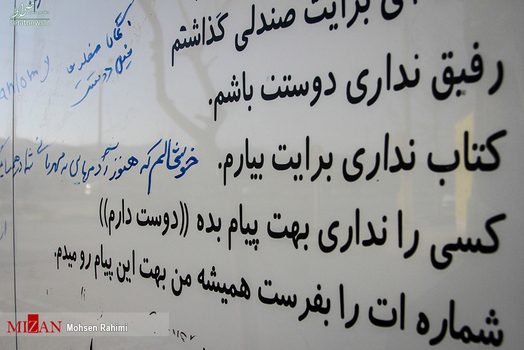 ی برایت صندلی گذاشتم
رفیق نداری دوستت باشم.
کتاب نداری برایت بیارم.
خوشحالم که هنوز آدمهایی به مهربانی شما در همسایگی
کسی را نداری بهت پیام بده ((دوست دارم))
شماره ات را بفرست همیشه من بهت این پیام رو میدم.
MIZAN Mohsen Rahimi